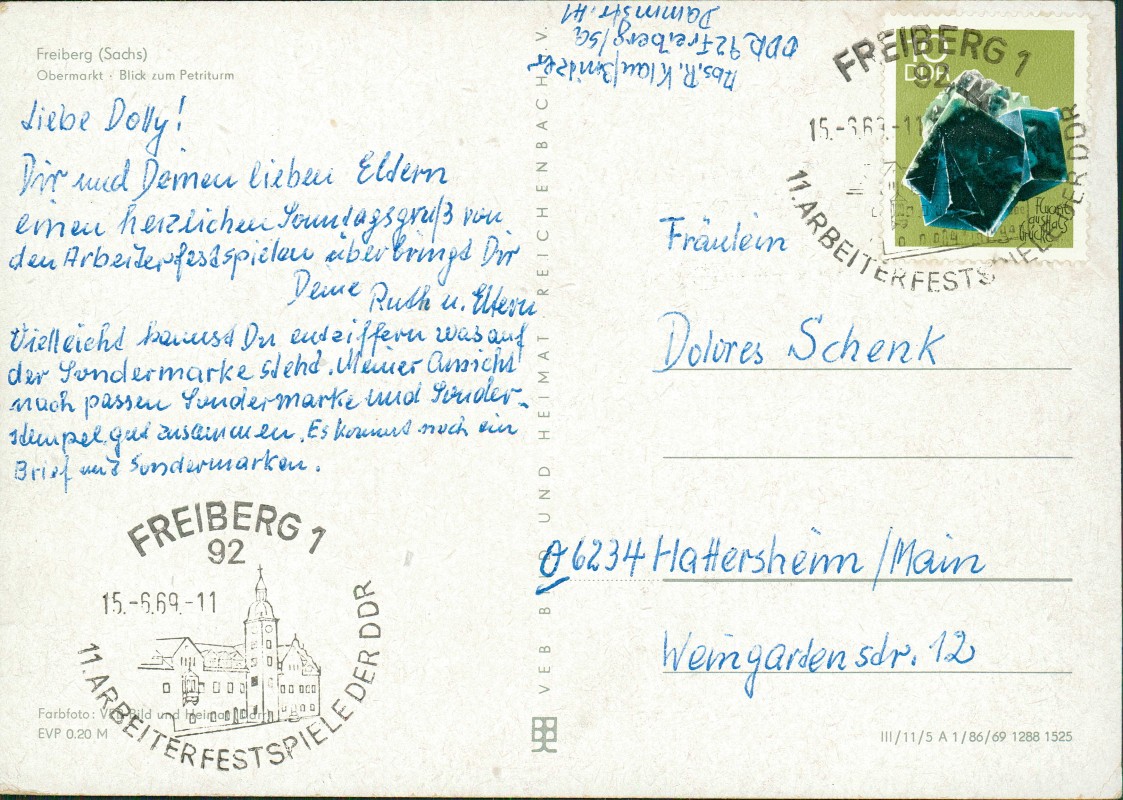 Freiberg (Sachs)
Obermarkt · Blick zum Petriturm
Liebe Dolly!
Dir und Deinen lieben Eltern
einen herzlichen Sonntagsgruß von
den Arbeiterfestspielen überbringt Dir
Deine Ruth u. Eltern
Vielleicht kannst Du entziffern was auf
der Sondermarke steht. Meiner Ansicht
nach passen Sondermarke und Sonder-
stempel gut zusammen. Es kommt noch ein
Brief mit Sondermarken.
FREIBERG 1
92
15.-6.69.-11
11. ARBEITERFESTSPIELE DER DDR
Farbfoto: VEB Bild und Heimat
EVP 0.20 M
VEB BILD UND HEIMAT REICHENBACH i. V.
Abs. R. Klaußnitzer
DDR 92 Freiberg/Sa
Dammstr. 41
10
DDR
FREIBERG 1
92
15.-6.69.-11
11. ARBEITERFESTSPIELE DER DDR
Fräulein
Dolores Schenk
6234 Hattersheim/Main
Weingartenstr. 12
III/11/5 A 1/86/69 1288 1525